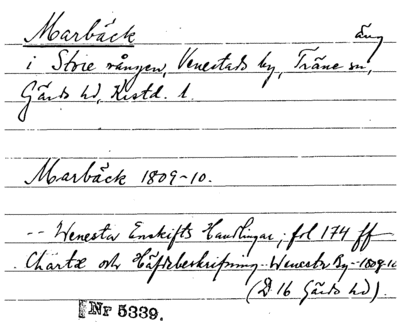 Marbäck äng
i Store vången, Venestads by, Träne sn,
Gärds hd, Kristd. l.
Marbäck 1809-10.
-- Wenesta Enskifts Handlingar, fol 174 ff
Charta och Häfdebeskrifning. Wenesta By - 1809-10
(D 16 Gärds hd).
Nr 5339.